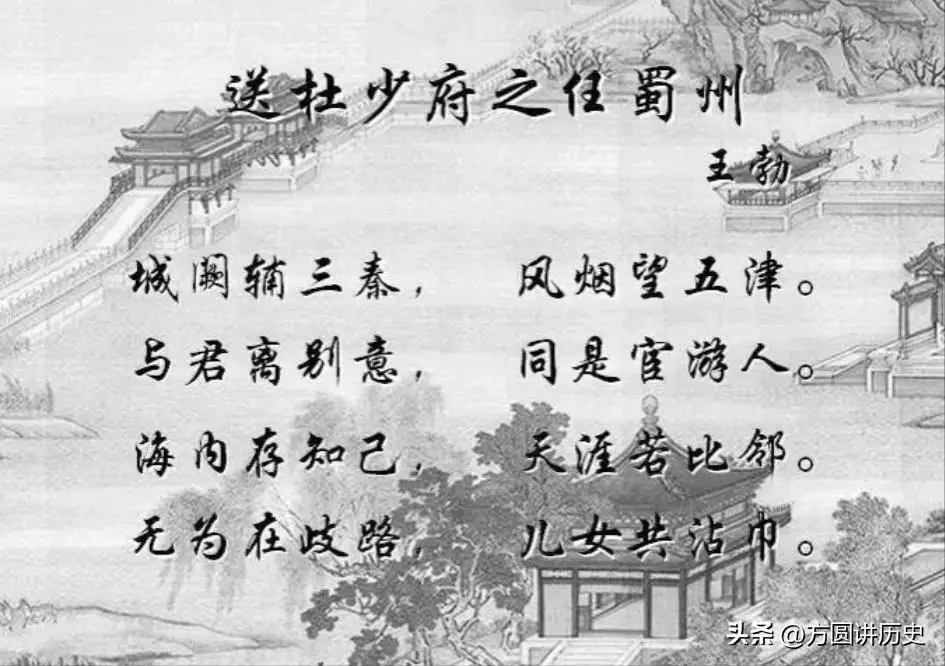 送杜少府之任蜀州
王勃
城阙辅三秦， 风烟望五津。
与君离别意， 同是宦游人。
海内存知己， 天涯若比邻。
无为在歧路， 儿女共沾巾。
头条 @方圆讲历史